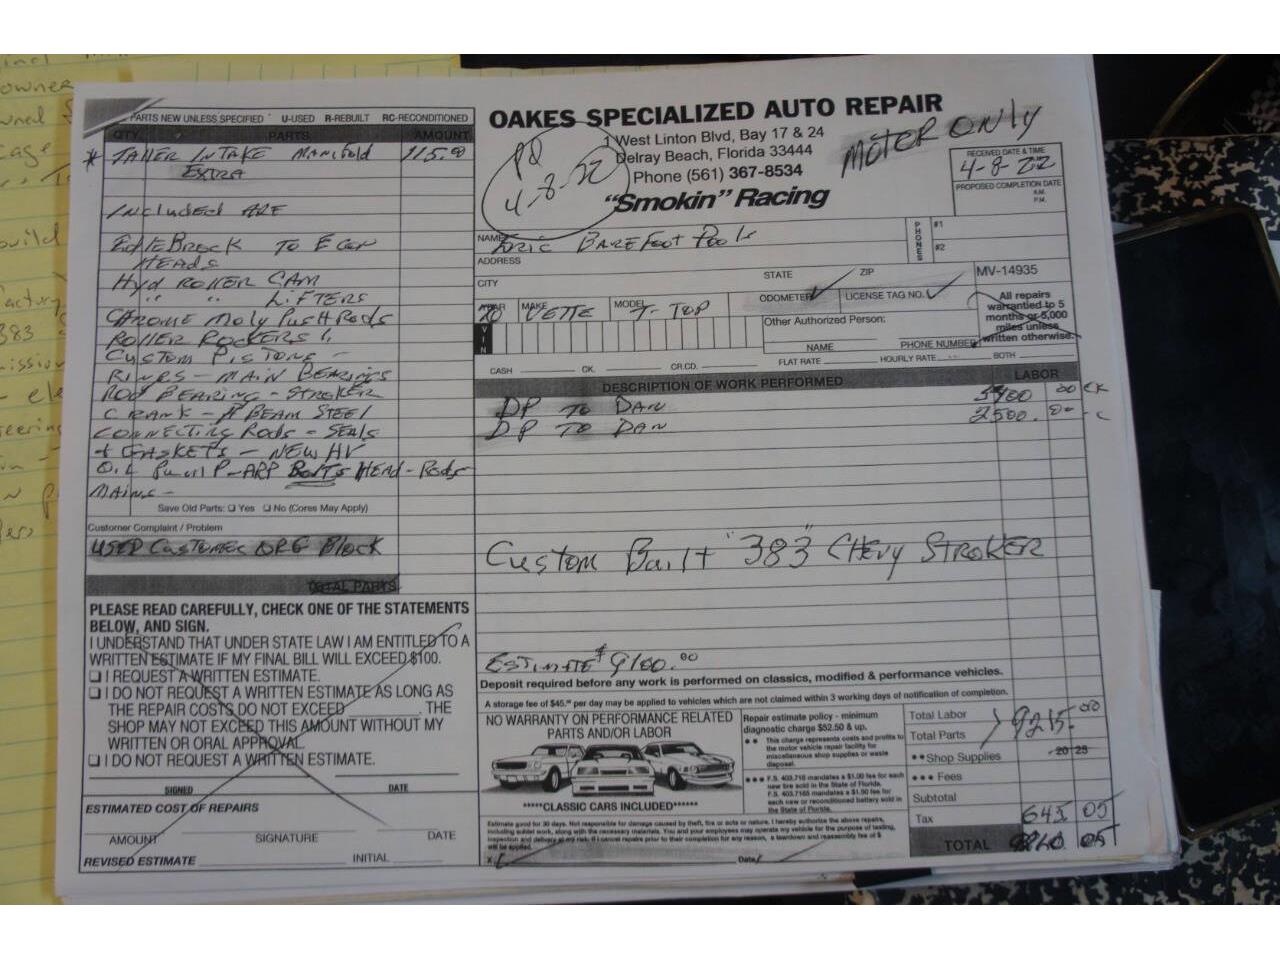 owner
PARTS NEW UNLESS SPECIFIED U-USED R-REBUILT RC-RECONDITIONED
QTY. PARTS AMOUNT
* TALLER INTAKE MANIFOLD 115.00
EXTRA
Included ARE
EDLEBROCK TO E
HEADS
Hyd ROLLER CAM
" " LIFTERS
CHROME Moly PUSH RODS
ROLLER ROCKERS
CUSTOM PISTONS -
RINGS - MAIN BEARINGS
ROD BEARING - STROKER
CRANK - H BEAM STEEL
CONNECTING RODS - SEALS
+ GASKETS - NEW HV
OIL PUMP - ARP BOLTS HEAD - RODS
MAINS -
Save Old Parts: ❑ Yes ❑ No (Cores May Apply)
Customer Complaint / Problem
USED CUSTOMER ORG Block
TOTAL PARTS
PLEASE READ CAREFULLY, CHECK ONE OF THE STATEMENTS
BELOW, AND SIGN.
I UNDERSTAND THAT UNDER STATE LAW I AM ENTITLED TO A
WRITTEN ESTIMATE IF MY FINAL BILL WILL EXCEED $100.
❑ I REQUEST A WRITTEN ESTIMATE.
❑ I DO NOT REQUEST A WRITTEN ESTIMATE AS LONG AS
THE REPAIR COSTS DO NOT EXCEED ________. THE
SHOP MAY NOT EXCEED THIS AMOUNT WITHOUT MY
WRITTEN OR ORAL APPROVAL.
❑ I DO NOT REQUEST A WRITTEN ESTIMATE.
SIGNED DATE
ESTIMATED COST OF REPAIRS
AMOUNT SIGNATURE DATE
REVISED ESTIMATE INITIAL
OAKES SPECIALIZED AUTO REPAIR
1 West Linton Blvd, Bay 17 & 24
Delray Beach, Florida 33444
Phone (561) 367-8534
"Smokin" Racing
PD
4-8-22
MOTOR ONLY
RECEIVED DATE & TIME
4-8-22
PROPOSED COMPLETION DATE
A.M.
P.M.
NAME Eric BAREFOOT POOLS
PHONES #1
#2
ADDRESS
CITY STATE ZIP
MV-14935
YEAR MAKE VETTE MODEL T-TOP ODOMETER LICENSE TAG NO.
All repairs
warrantied to 5
months or 5,000
miles unless
written otherwise.
VIN
Other Authorized Person:
NAME PHONE NUMBER
CASH CK. CR.CD. FLAT RATE HOURLY RATE BOTH
DESCRIPTION OF WORK PERFORMED LABOR
DP TO DAN 00 CK
DP TO DAN 2500.00 - C
Custom Built "383" CHEVY STROKER
ESTIMATE $9100.00
Deposit required before any work is performed on classics, modified & performance vehicles.
A storage fee of $45.00 per day may be applied to vehicles which are not claimed within 3 working days of notification of completion.
NO WARRANTY ON PERFORMANCE RELATED
PARTS AND/OR LABOR
*****CLASSIC CARS INCLUDED******
Repair estimate policy - minimum
diagnostic charge $52.50 & up.
•• This charge represents costs and profits to
the motor vehicle repair facility for
miscellaneous shop supplies or waste
disposal.
••• F.S. 403.718 mandates a $1.00 fee for each
new tire sold in the State of Florida.
F.S. 403.7185 mandates a $1.50 fee for
each new or reconditioned battery sold in
the State of Florida.
Total Labor
Total Parts 9215.00
••Shop Supplies
••• Fees
Subtotal
Tax 645 05
TOTAL 9860 05
Estimate good for 30 days. Not responsible for damage caused by theft, fire or acts or nature. I hereby authorize the above repairs,
including sublet work, along with the necessary materials. You and your employees may operate my vehicle for the purpose of testing,
inspection and delivery at my risk.
X Date